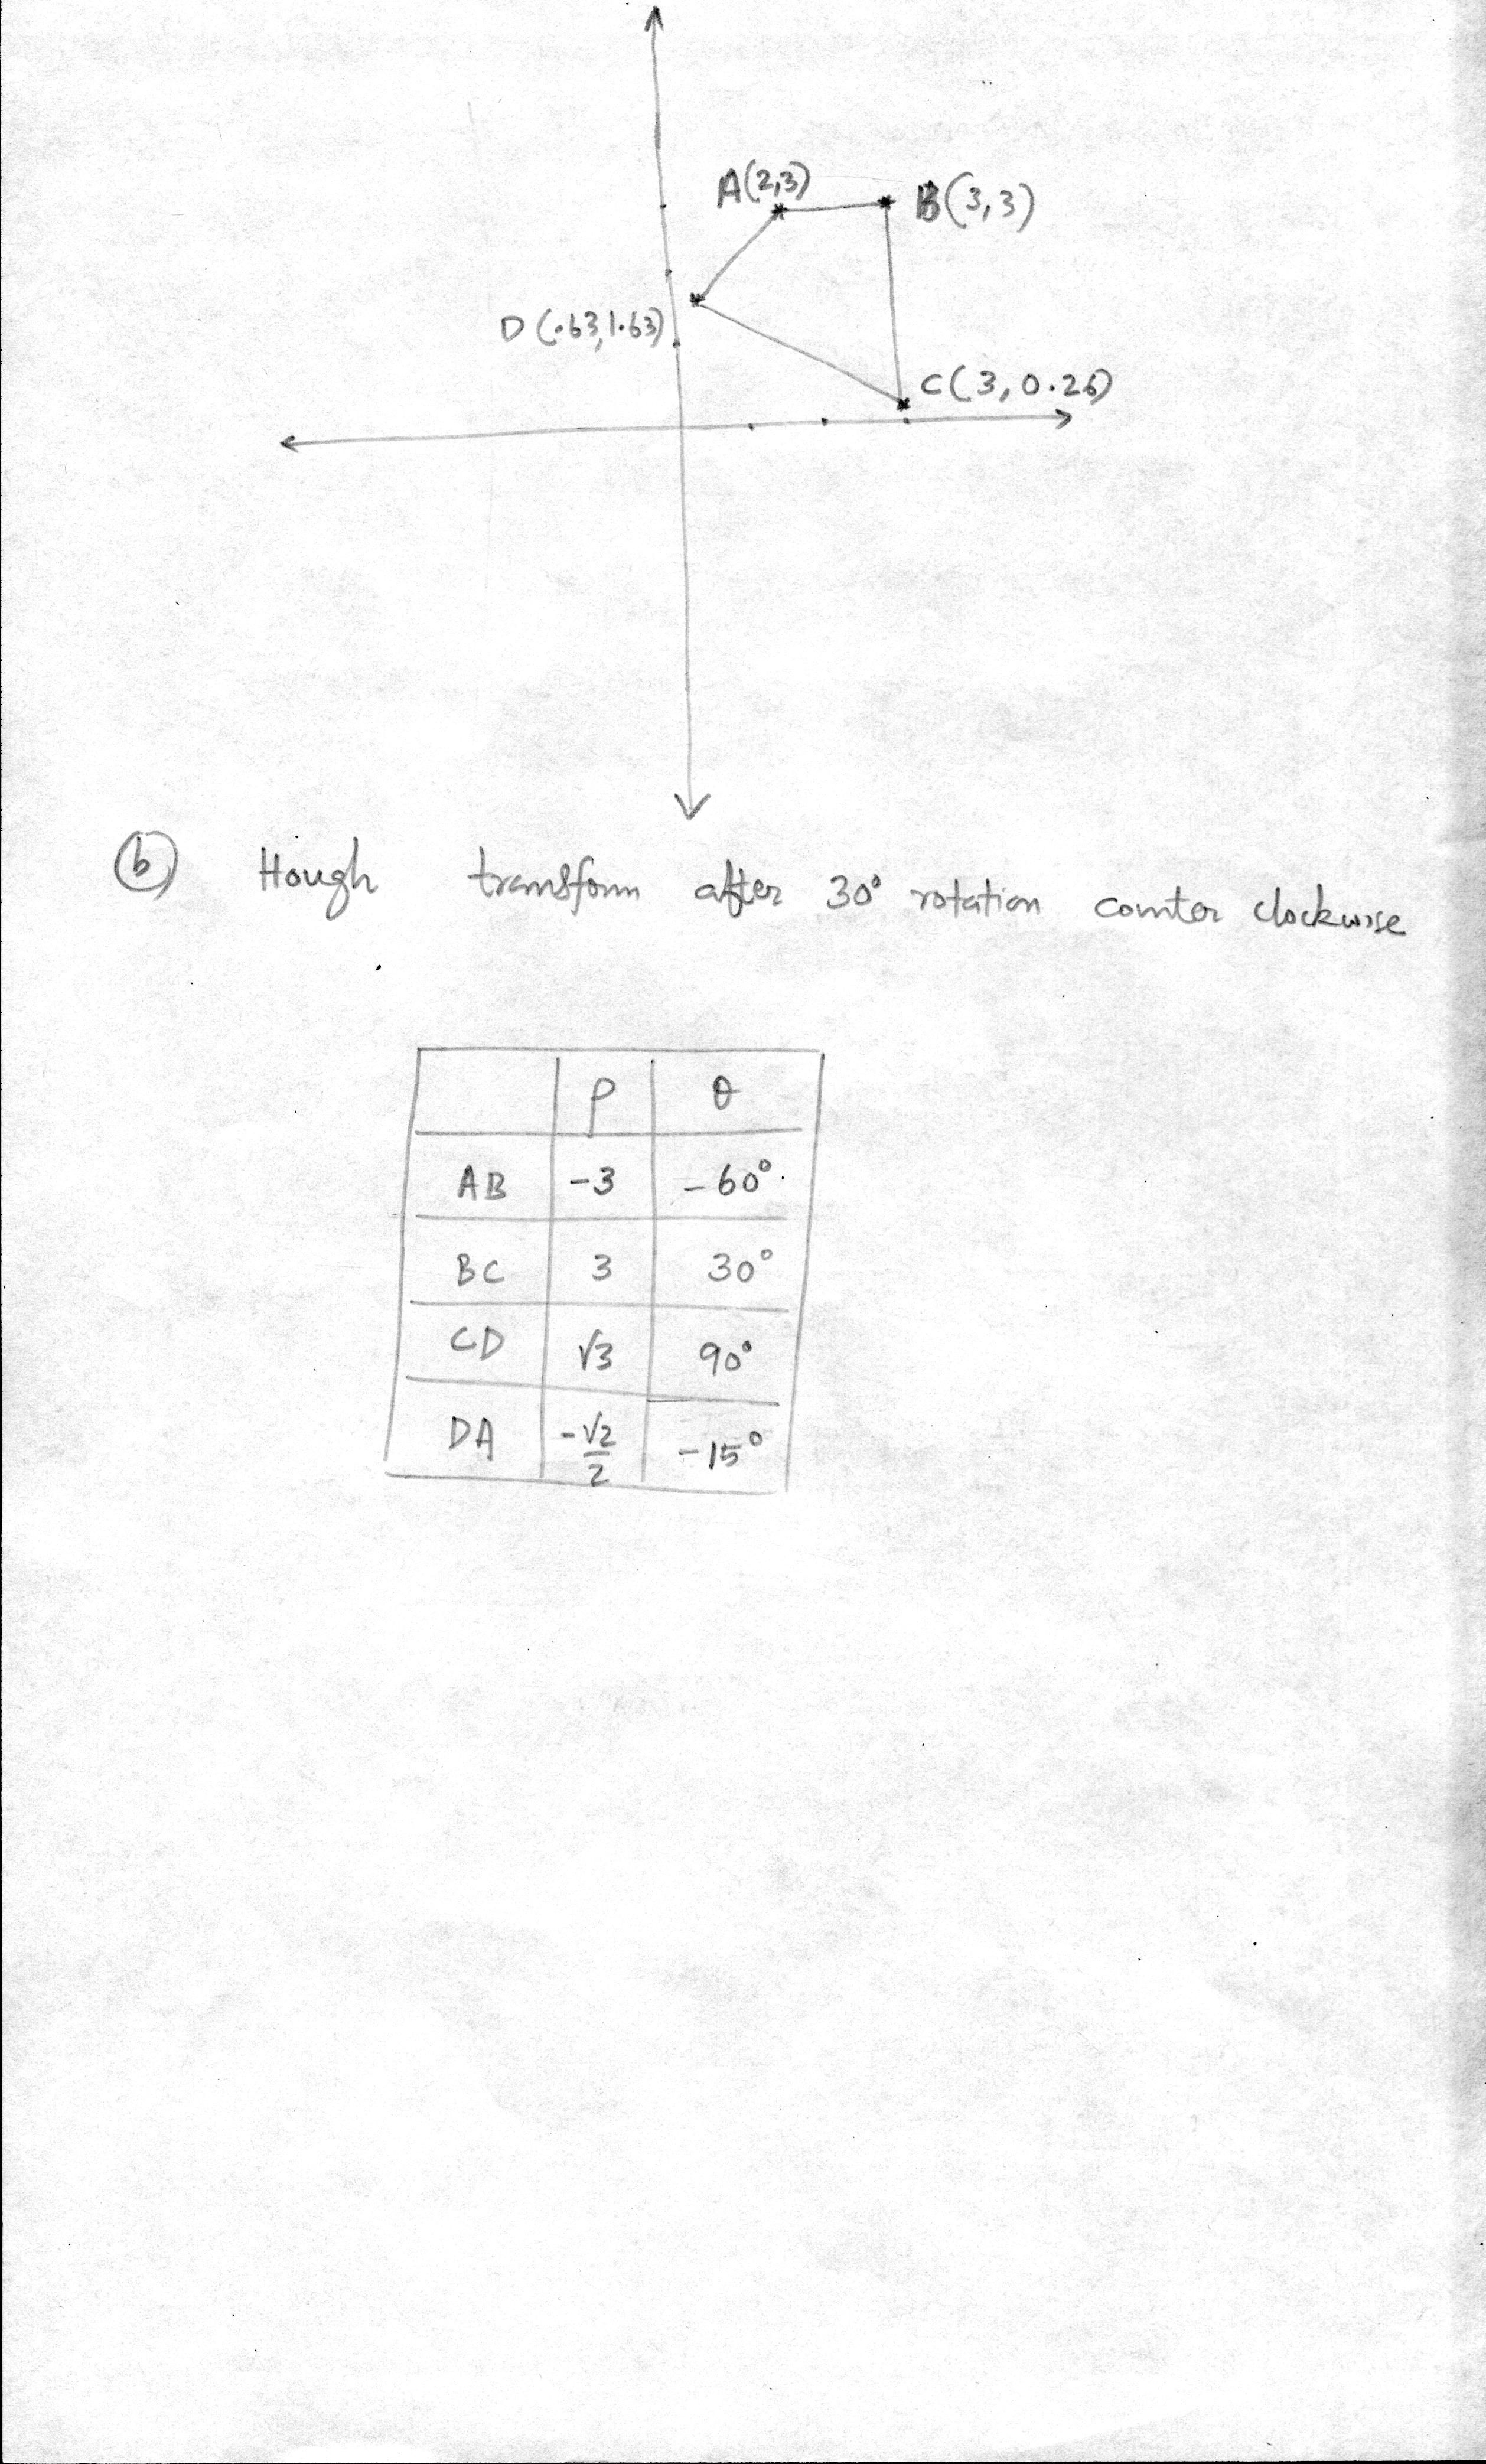 A(2,3)
B(3,3)
D(.63,1.63)
C(3, 0.26)
(b) Hough transform after 30° rotation counter clockwise
ρ θ
AB -3 -60°
BC 3 30°
CD √3 90°
DA -√2/2 -15°